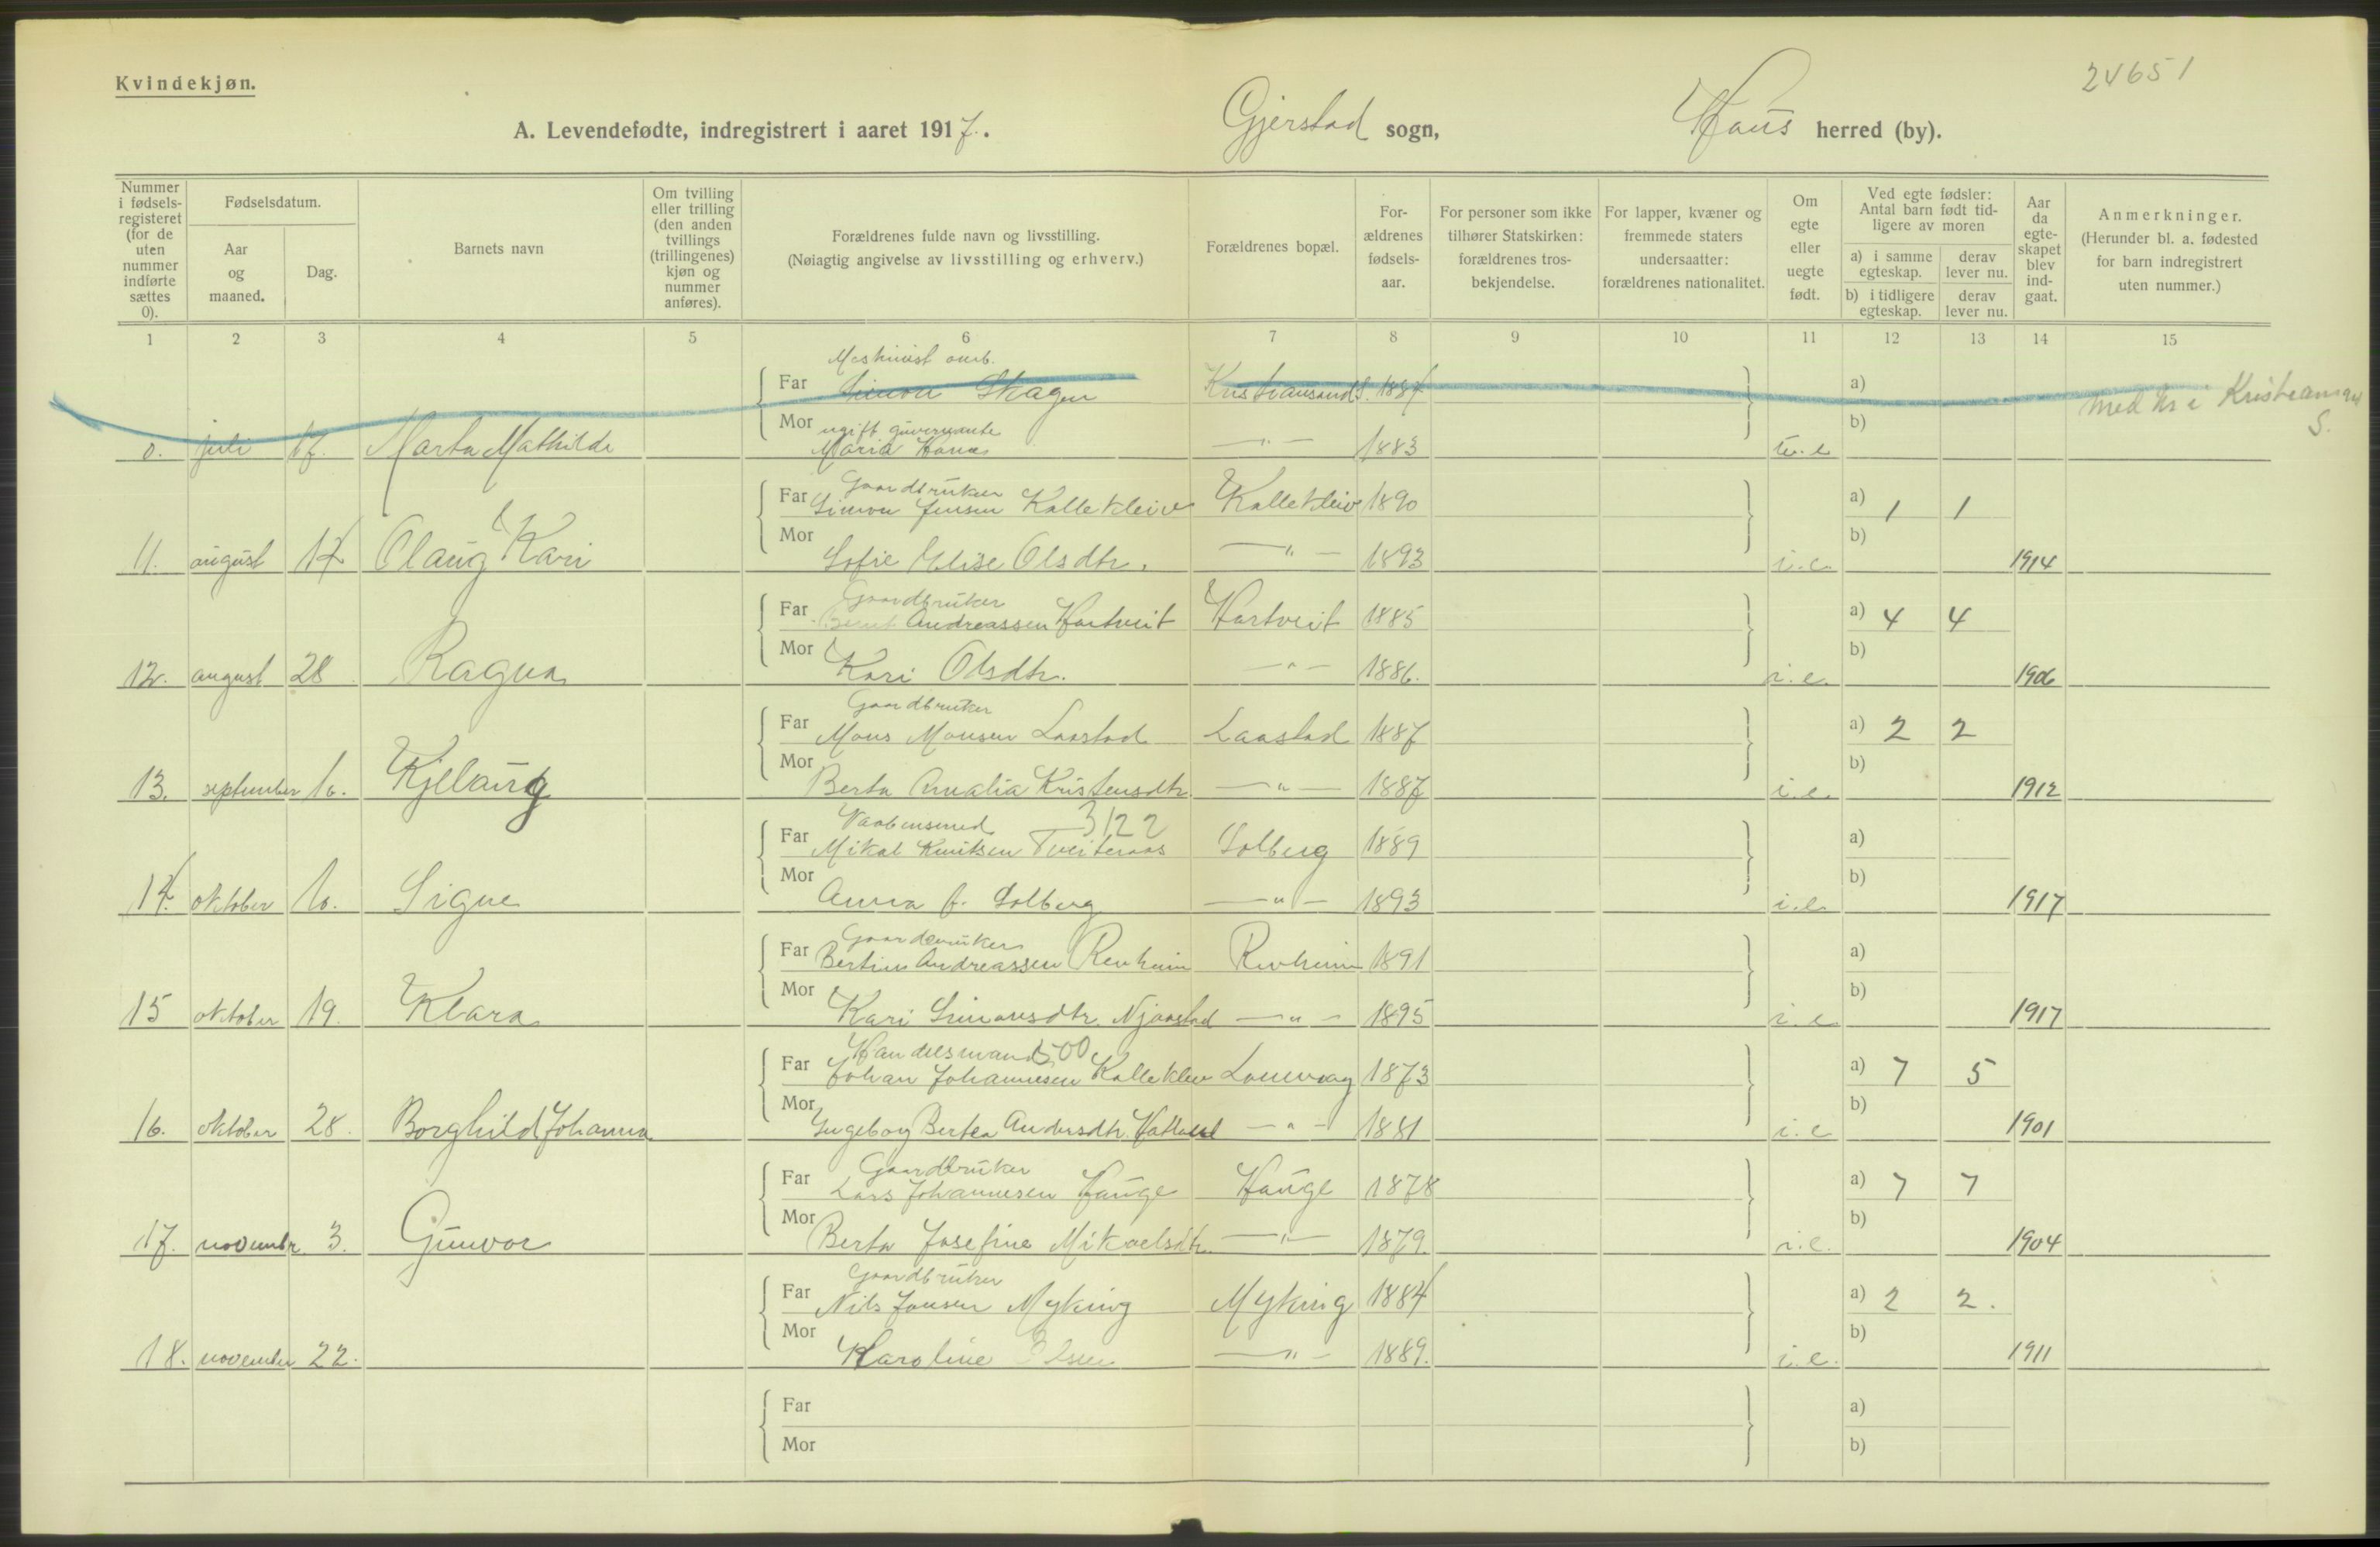 24651
Kvindekjøn.
A. Levendefødte, indregistrert i aaret 1917. Gjerstad sogn, Haus herred (by).
Nummer i fødsels-registeret (for de uten nummer indførte sættes 0).
Fødselsdatum.
Aar og maaned.
Dag.
Barnets navn
Om tvilling eller trilling (den anden tvillings (trillingenes) kjøn og nummer anføres).
Forældrenes fulde navn og livsstilling.
(Nøiagtig angivelse av livsstilling og erhverv.)
Forældrenes bopæl.
For-ældrenes fødsels-aar.
For personer som ikke tilhører Statskirken: forældrenes tros-bekjendelse.
For lapper, kvæner og fremmede staters undersaatter: forældrenes nationalitet.
Om egte eller uegte født.
Ved egte fødsler: Antal barn født tid-ligere av moren
a) i samme egteskap.
derav lever nu.
b) i tidligere egteskap.
derav lever nu.
Aar da egte-skapet blev ind-gaat.
Anmerkninger.
(Herunder bl. a. fødested for barn indregistrert uten nummer.)
1 2 3 4 5 6 7 8 9 10 11 12 13 14 15
Maskinist
Far Simon Skagen Kristiansand S. 1884 a)
med tr i Kristiansand S.
Mor ugift guvernante b)
0. juli 17. Marta Mathilde Maria -"- 1883 u.e
Gaardbruker
Far Simon Jensen Kallekleive Kallekleiv 1890 a) 1 1
Mor b)
11. august 14 Olaug Kari Sofie Elise Olsdtr. -"- 1893 i.e. 1914
Gaardbruker
Far Bernt Andreassen Hartveit Hartveit 1885 a) 4 4
Mor b)
12. august 28 Ragna Kari Olsdtr. -"- 1886. i.e. 1906
Gaardbruker
Far Mons Monsen Laastad Laastad 1887 a) 2 2
Mor b)
13. september 10. Kjelaug Berta Amalia Kristensdtr. -"- 1887 i.e. 1912
Vaabensmed 3122
Far Mikal Knutsen Tveiteraas Solberg 1889 a)
Mor b)
14. oktober 10. Signe Anna f. Solberg -"- 1893 i.e. 1917
Gaardbruker
Far Bertin Andreassen Revheim Revheim 1891 a)
Mor b)
15 oktober 19. Klara Kari Simonsdtr. Njaastad -"- 1895 i.e. 1917
Handelsmand 500
Far Johan Johannesen Kallekleiv Lonevaag 1873 a) 7 5
Mor b)
16. oktober 28. Borghild Johanna Ingeborg Berta Andersdtr. Hatland -"- 1881 i.e 1901
Gaardbruker
Far Lars Johannesen Hauge Hauge 1878 a) 7 7
Mor b)
17. novembr. 3. Gunvor Berta Josefine Mikaelsdtr. -"- 1879. i.e. 1904
Gaardbruker
Far Nils Jonsen Myking Myking 1884 a) 2 2.
Mor b)
18. november 22. Karoline -"- 1889. i.e. 1911
Far a)
Mor b)